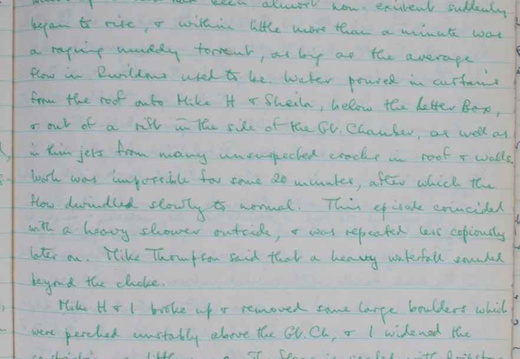 been almost non-existent suddenly
began to rise, & within little more than a minute was
a raging muddy torrent, as big as the average
flow in Swildons used to be. Water poured in curtains
from the roof onto Mike H & Sheila, below the Letter Box,
& out of a rift in the side of the Gt. Chamber, as well as
in thin jets from many unsuspected cracks in roof & walls
Work was impossible for some 20 minutes, after which the
flow dwindled slowly to normal. This episode coincided
with a heavy shower outside, & was repeated less copiously
later on. Mike Thompson said that a heavy waterfall sounded
beyond the choke.
Mike H & I broke up & removed some large boulders which
were perched unstably above the Gt. Ch, & I widened the